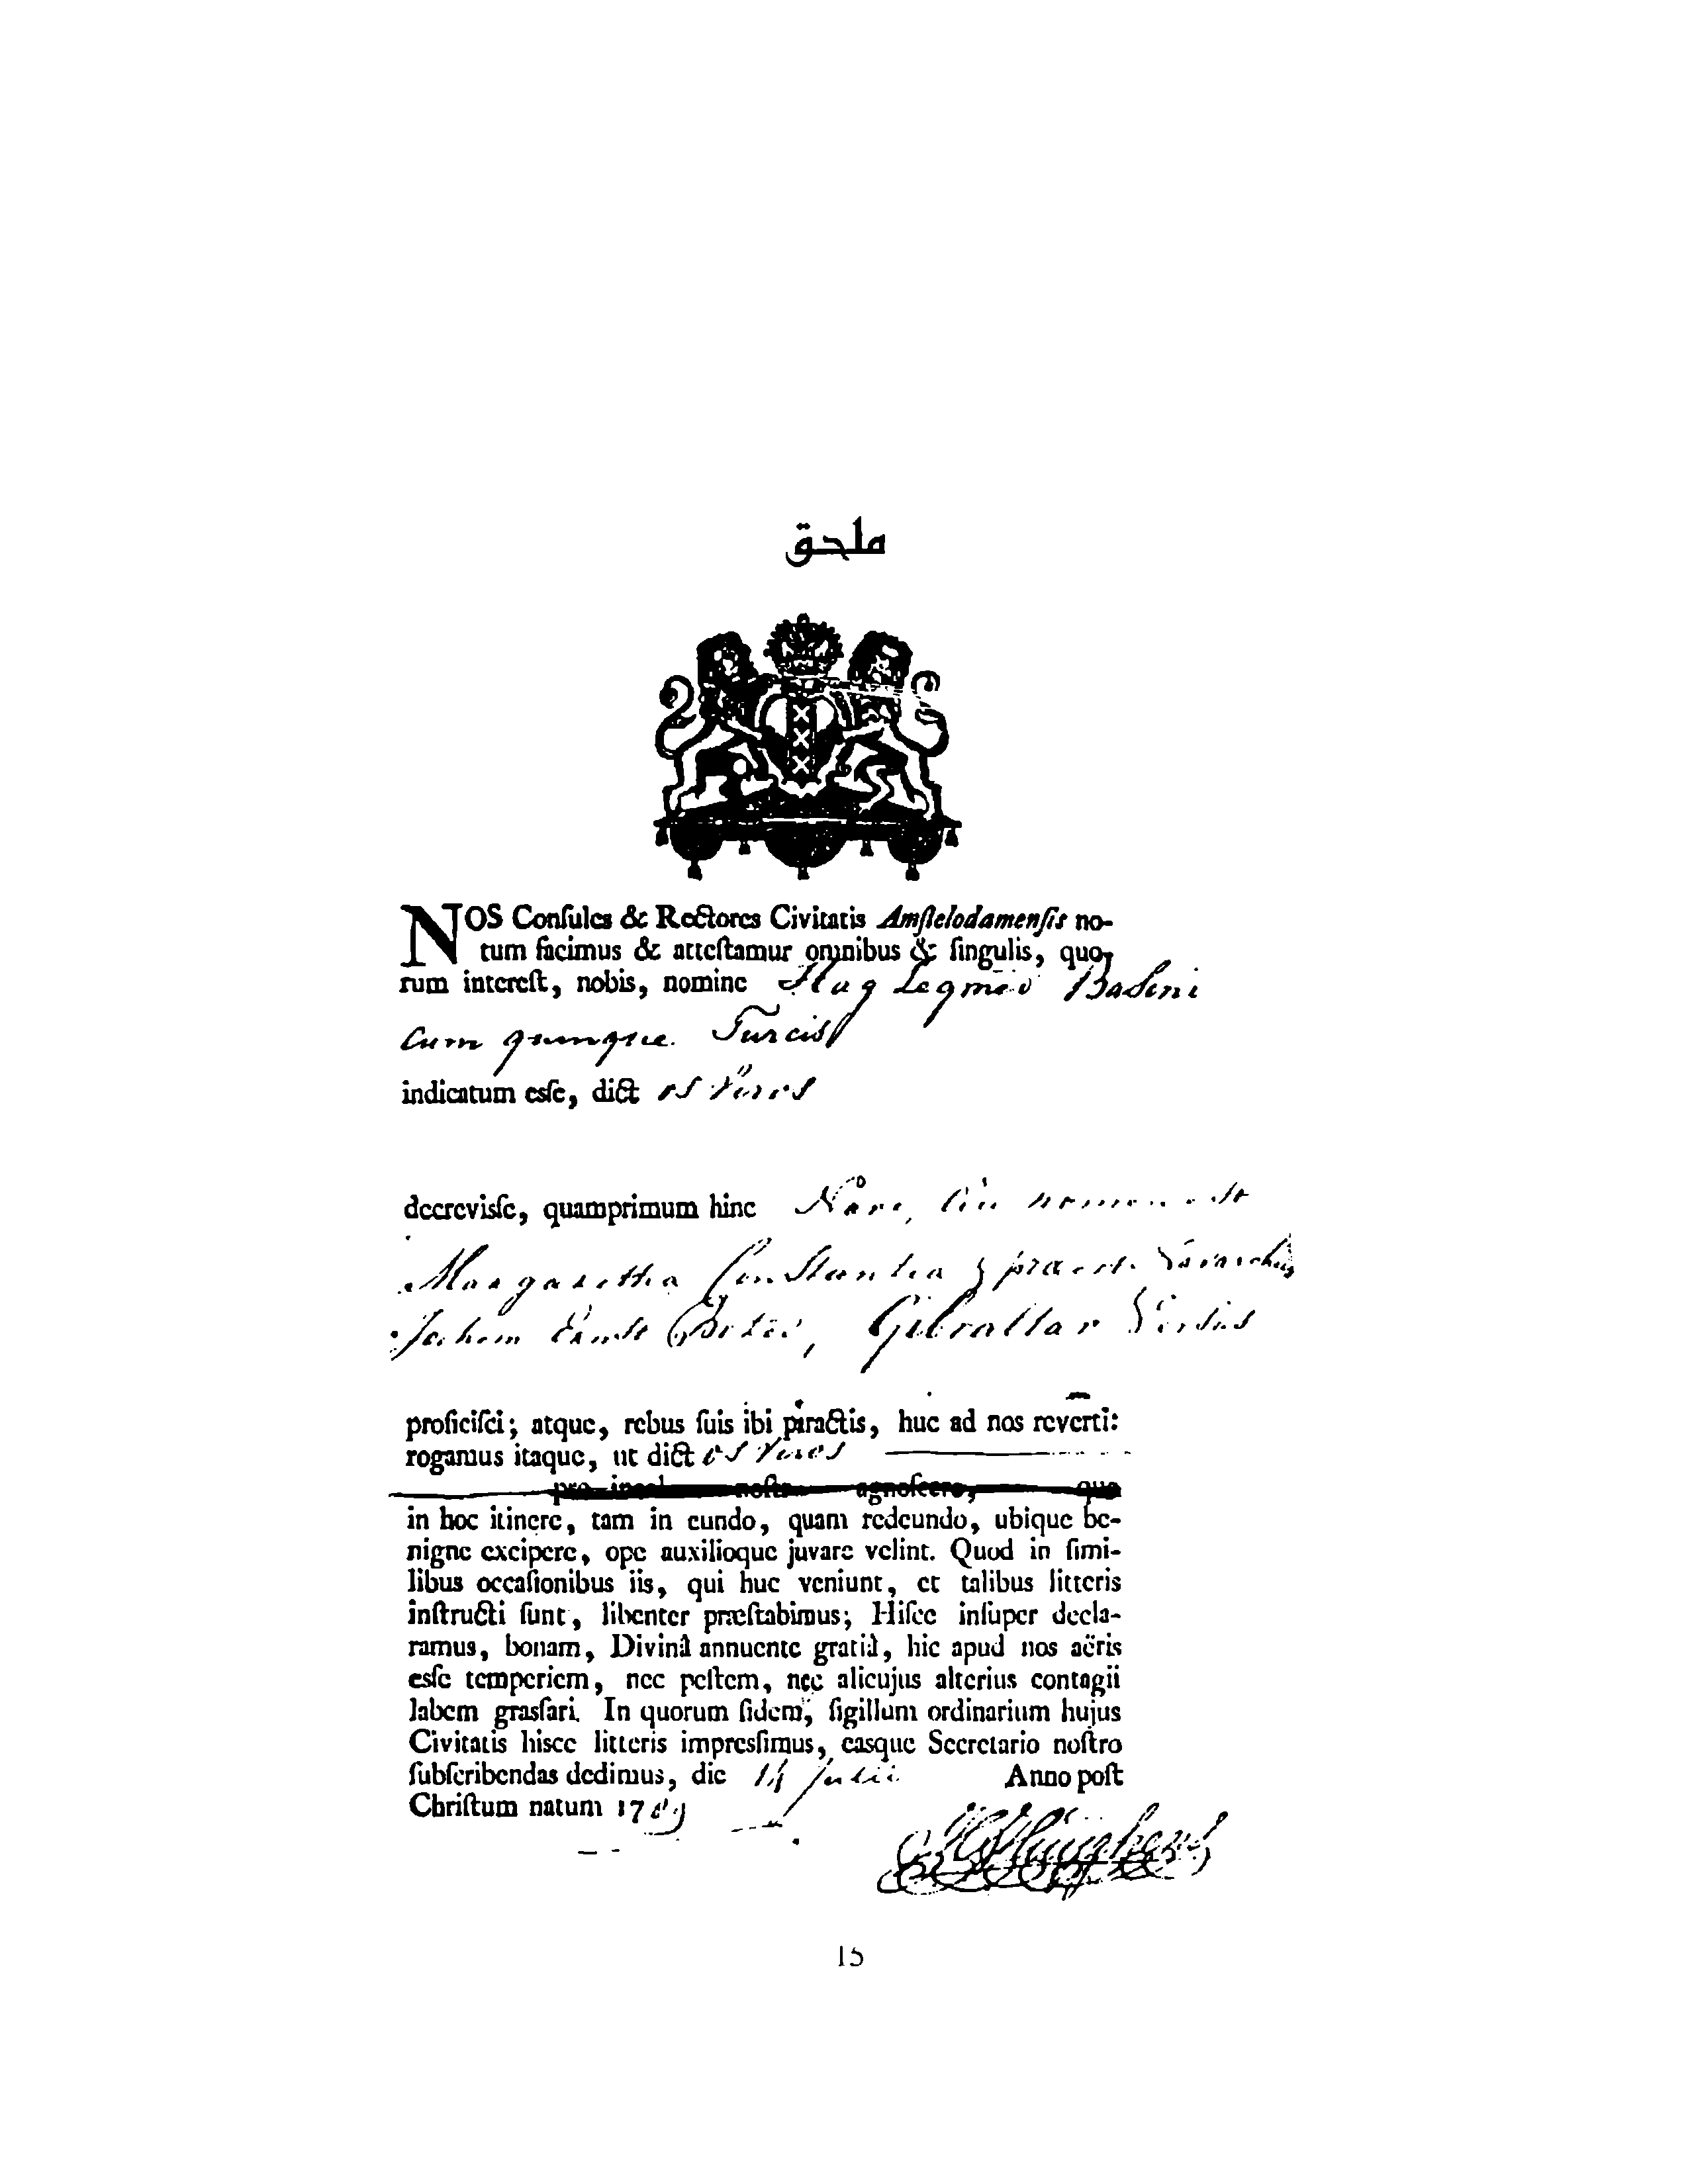 ملحق
NOS Conſules & Rectores Civitatis Amſtelodamenſis no-
tum facimus & atteſtamur omnibus & ſingulis, quo-
rum intereſt, nobis, nomine Hag Legmed Badini
Cum quinque Turcis
indicatum esſe, dict os Viros
decrevisſe, quamprimum hinc Nave, cui nomen est
Margaretha Constantia & praeest Navarchus
Jochem Ernst, Gibraltar Versus
proficiſci; atque, rebus ſuis ibi peractis, huc ad nos reverti:
rogamus itaque, ut dict os Viros
pro incol noſtr agnoſcere, que
in hoc itinere, tam in eundo, quam redeundo, ubique be-
nigne excipere, ope auxilioque juvare velint. Quod in ſimi-
libus occaſionibus iis, qui huc veniunt, et talibus litteris
inſtructi ſunt, libenter præſtabimus; Hiſce inſuper decla-
ramus, bonam, Divinâ annuente gratiâ, hic apud nos aëris
esſe temperiem, nec peſtem, nec alicujus alterius contagii
labem grasſari. In quorum fidem, ſigillum ordinarium hujus
Civitatis hisce litteris impresſimus, easque Secretario noſtro
ſubſcribendas dedimus, die 14 Julii Anno poſt
Chriſtum natum 1789
15